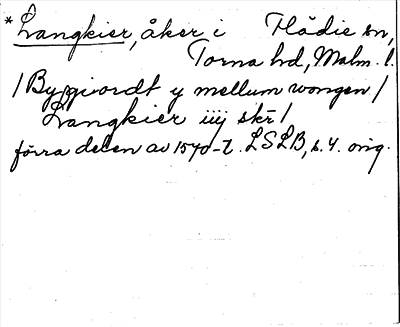 *Langkier, åker i Flädie sn,
Torna hd, Malm. l.
/ Bygiordt y mellum wongen /
Langkier iiij skr /
förra delen av 1570-t. LSLB, s. 4. orig.